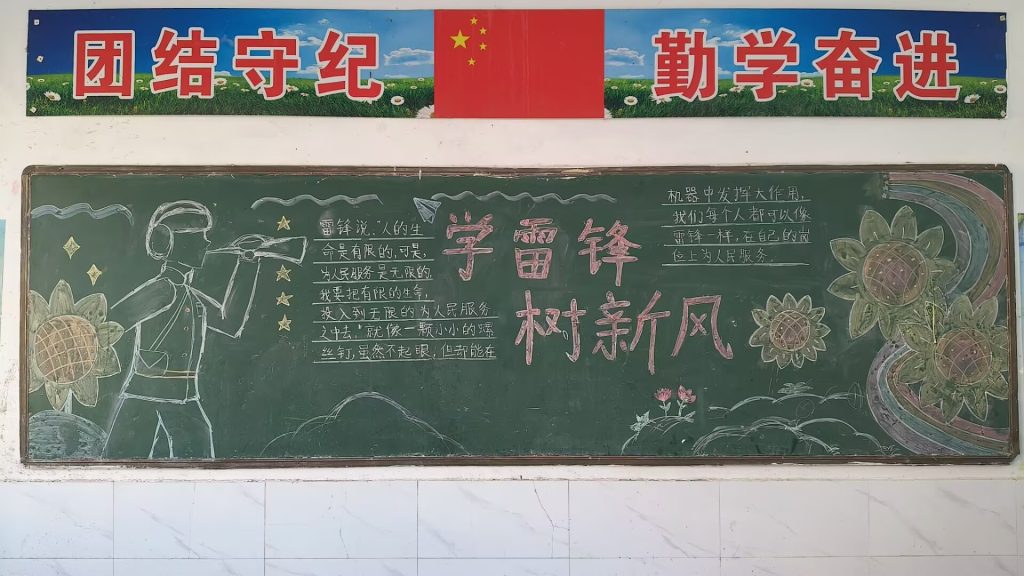 团结守纪
勤学奋进
学雷锋
树新风
雷锋说:"人的生
命是有限的,可是,
为人民服务是无限的.
我要把有限的生命,
投入到无限的为人民服务
之中去."就像一颗小小的螺
丝钉,虽然不起眼,但却能在
机器中发挥大作用,
我们每个人都可以像
雷锋一样,在自己的岗
位上为人民服务.